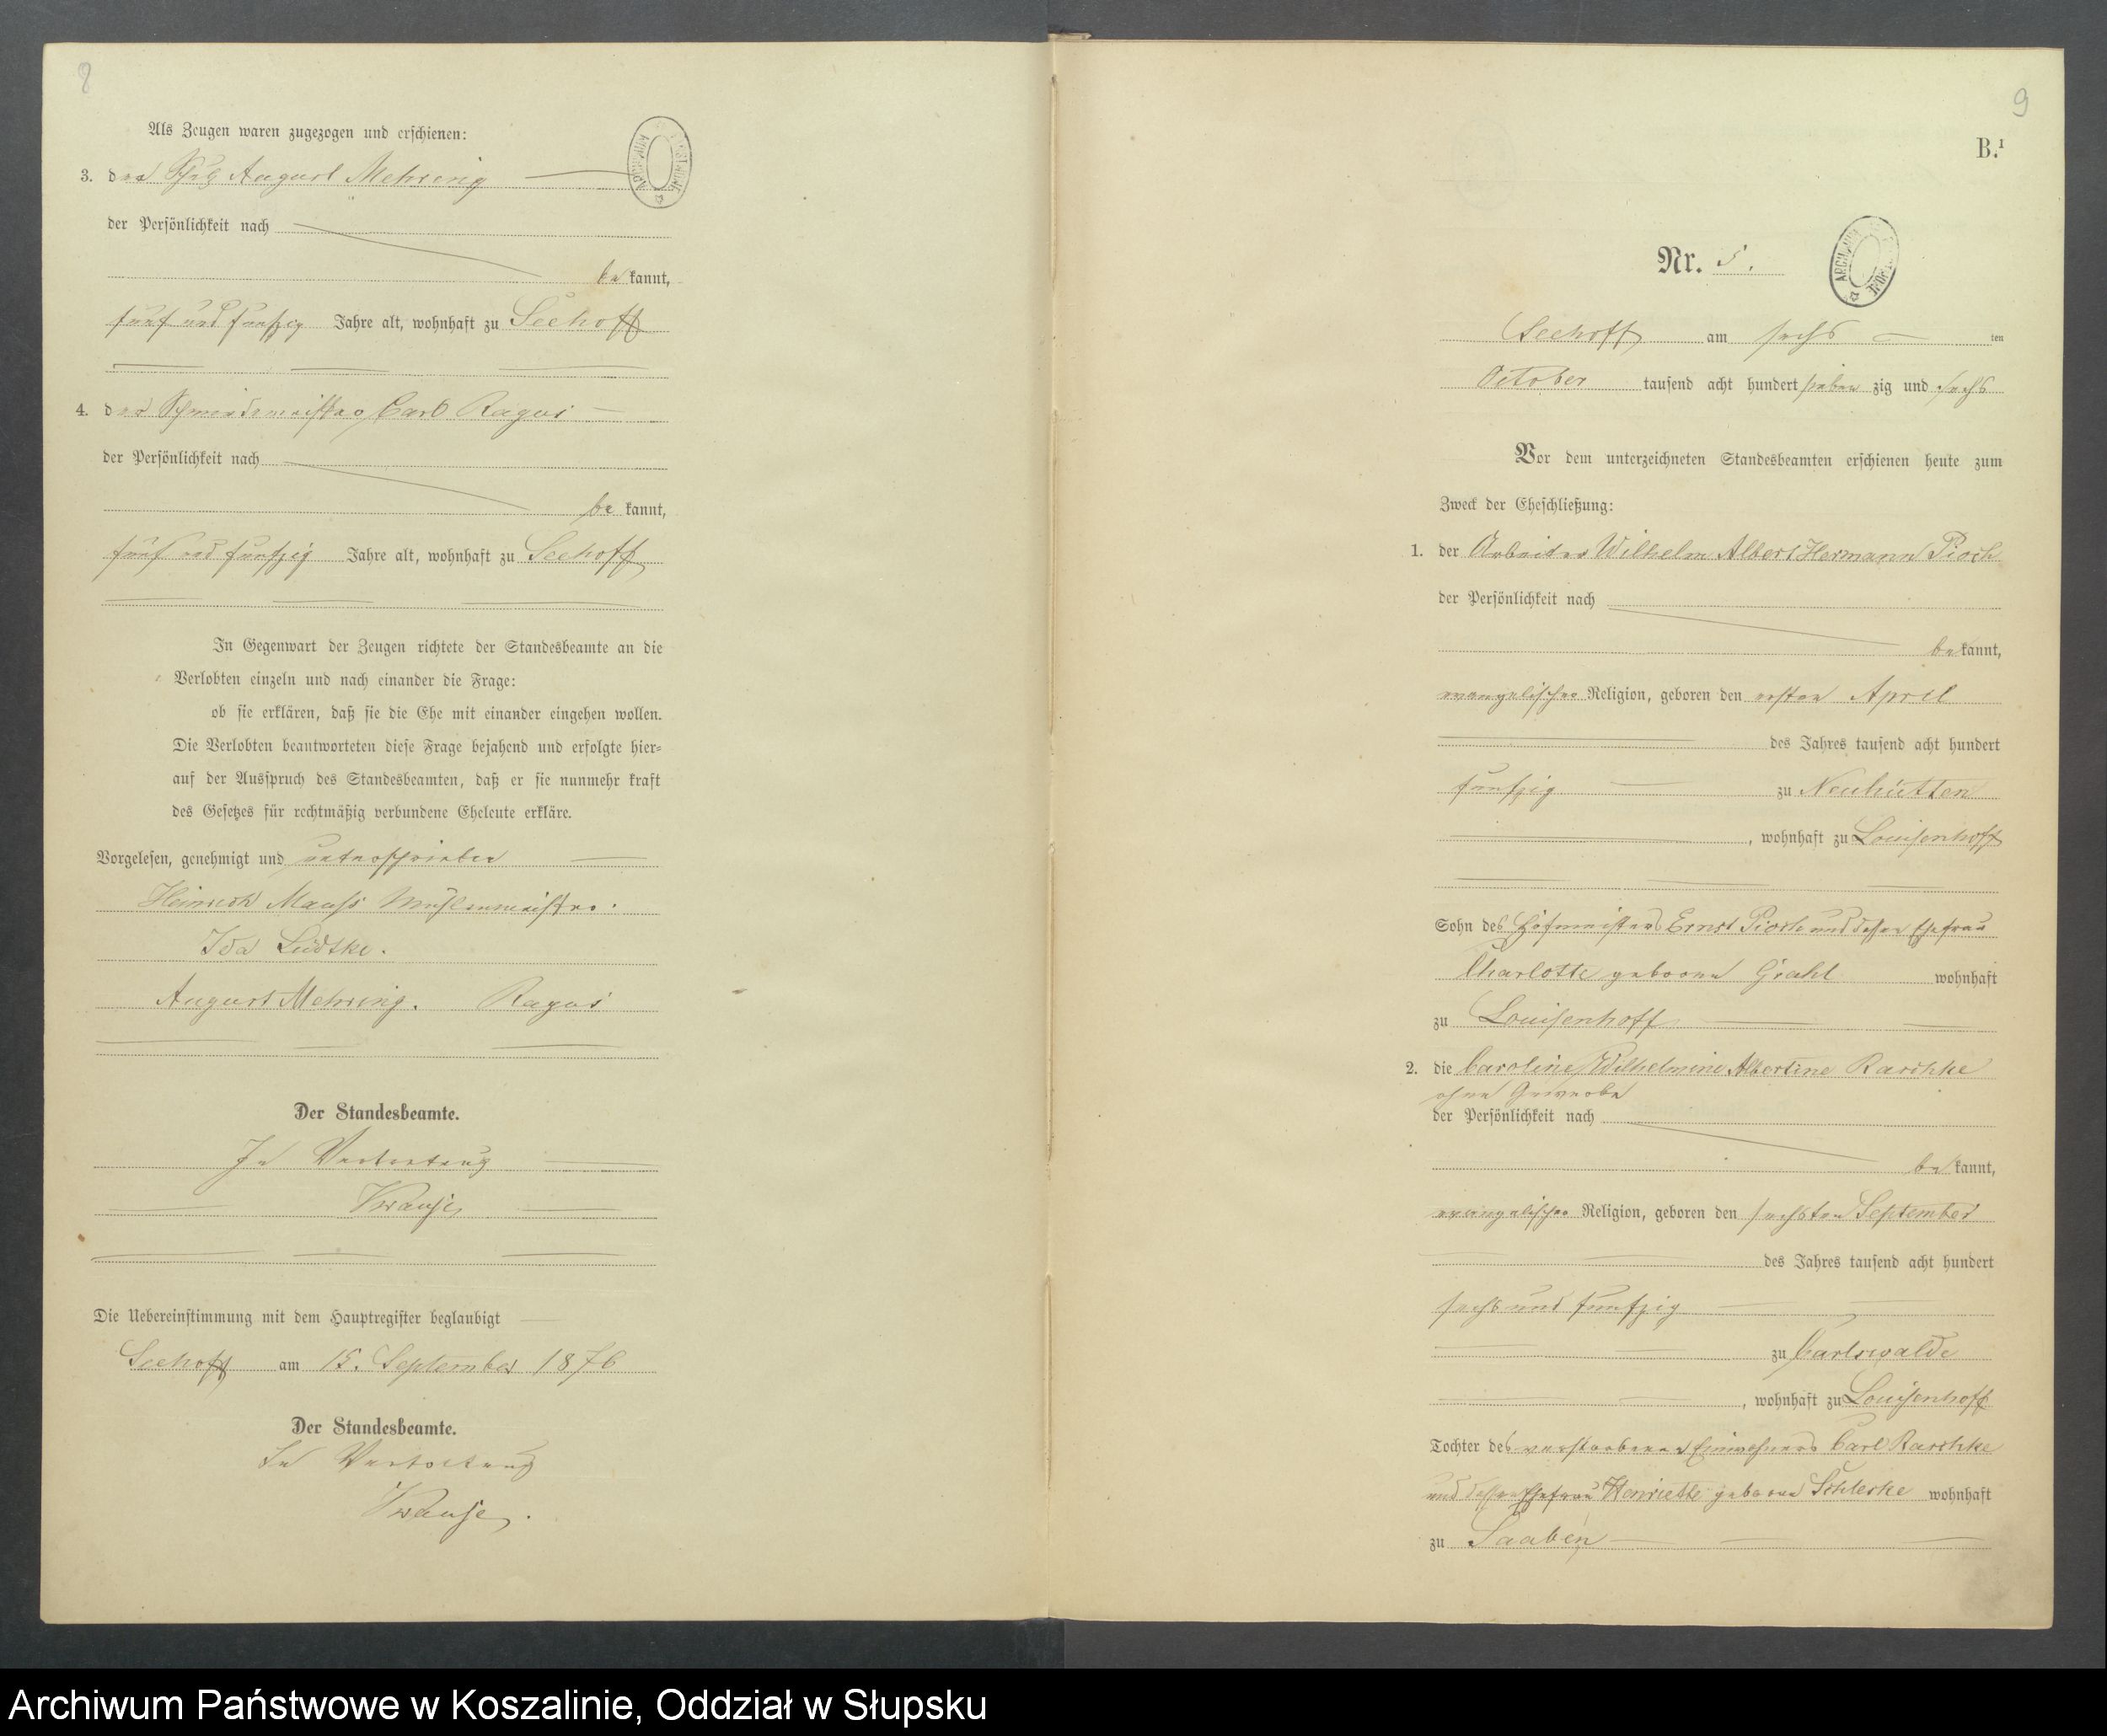 8
Als Zeugen waren zugezogen und erschienen:
3. der Schulz August Mehring
der Persönlichkeit nach
be kannt,
fünf und funfzig Jahre alt, wohnhaft zu Seehoff
4. der Schmiedemeister Carl Ragus
der Persönlichkeit nach
be kannt,
fünf und funfzig Jahre alt, wohnhaft zu Seehoff
In Gegenwart der Zeugen richtete der Standesbeamte an die
Verlobten einzeln und nach einander die Frage:
ob sie erklären, daß sie die Ehe mit einander eingehen wollen.
Die Verlobten beantworteten diese Frage bejahend und erfolgte hier=
auf der Ausspruch des Standesbeamten, daß er sie nunmehr kraft
des Gesetzes für rechtmäßig verbundene Eheleute erkläre.
Vorgelesen, genehmigt und unterschrieben
Heinrich Manss Mühlenmeister.
Ida Lüdtke.
August Mehring. Ragus
Der Standesbeamte.
In Vertretung
Krause
Die Uebereinstimmung mit dem Hauptregister beglaubigt
Seehoff am 15. September 1876
Der Standesbeamte.
In Vertretung
Krause.
9
B.I
Nr. 5.
Seehoff am sechs ten
October tausend acht hundert sieben zig und sechs
Vor dem unterzeichneten Standesbeamten erschienen heute zum
Zweck der Eheschließung:
1. der Arbeiter Wilhelm Albert Hermann Pioch
der Persönlichkeit nach
be kannt,
evangelischer Religion, geboren den ersten April
des Jahres tausend acht hundert
funfzig zu Neuhütten
, wohnhaft zu Louisenhoff
Sohn des Hofmeisters Ernst Pioch und dessen Ehefrau
Charlotte geboren Grahl wohnhaft
zu Louisenhoff
2. die Caroline Wilhelmine Albertine Raschke
ohne Gewerbe
der Persönlichkeit nach
be kannt,
evangelischer Religion, geboren den sechsten September
des Jahres tausend acht hundert
sechs und funfzig
zu Carlswalde
, wohnhaft zu Louisenhoff
Tochter des verstorbenen Einwohners Carl Raschke
und dessen Ehefrau Henriette geboren Schleske wohnhaft
zu Saaben
Archiwum Państwowe w Koszalinie, Oddział w Słupsku